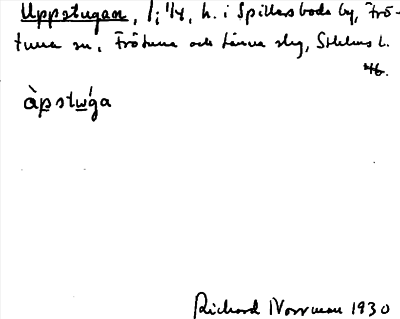 Uppstugan, 1; 1/4, h. i Spillersboda by, Frö-
tuna sn, Frötuna och Länna slg, Sthlms l.
46.
àpstwǵa
Richard Norrman 1930